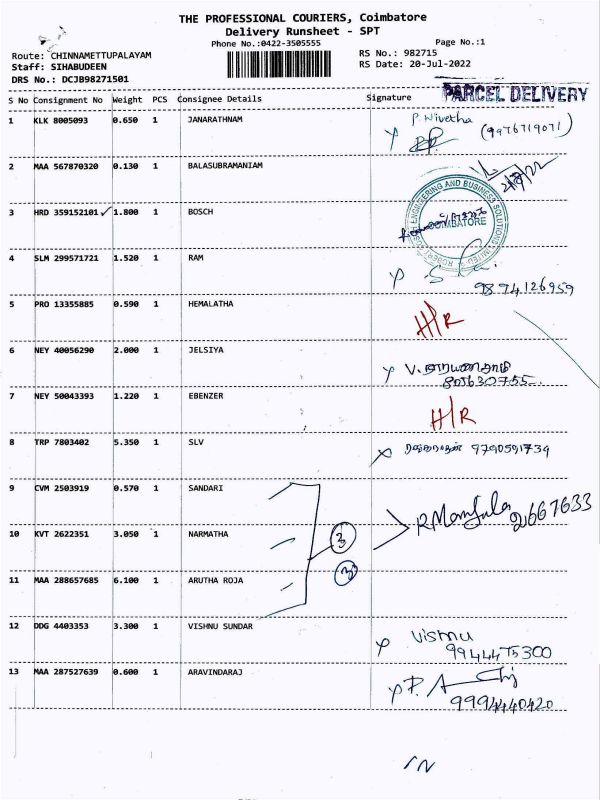 THE PROFESSIONAL COURIERS, Coimbatore
Delivery Runsheet - SPT
Phone No.:0422-3505555
Page No.:1
Route: CHINNAMETTUPALAYAM
Staff: SIHABUDEEN
DRS No.: DCJB98271501
RS No.: 982715
RS Date: 20-Jul-2022
PARCEL DELIVERY
S No Consignment No Weight PCS Consignee Details Signature
1 KLK 8005093 0.650 1 JANARATHNAM P. Nivetha
(9976719071)
2 MAA 567870320 0.130 1 BALASUBRAMANIAM
ENGINEERING AND BUSINESS SOLUTIONS
COIMBATORE
3 HRD 359152101 1.800 1 BOSCH
4 SLM 299571721 1.520 1 RAM
9874126959
5 PRO 13355885 0.590 1 HEMALATHA H/R
6 NEY 40056290 2.000 1 JELSIYA V. நாராயணசாமி
805630755
7 NEY 50043393 1.220 1 EBENZER H/R
8 TRP 7803402 5.350 1 SLV 9790591734
9 CVM 2503919 0.570 1 SANDARI
R Manjula 2667633
10 KVT 2622351 3.050 1 NARMATHA 3
11 MAA 288657685 6.100 1 ARUTHA ROJA 3
12 DDG 4403353 3.300 1 VISHNU SUNDAR Vishnu
9944475300
13 MAA 287527639 0.600 1 ARAVINDARAJ
9994440420